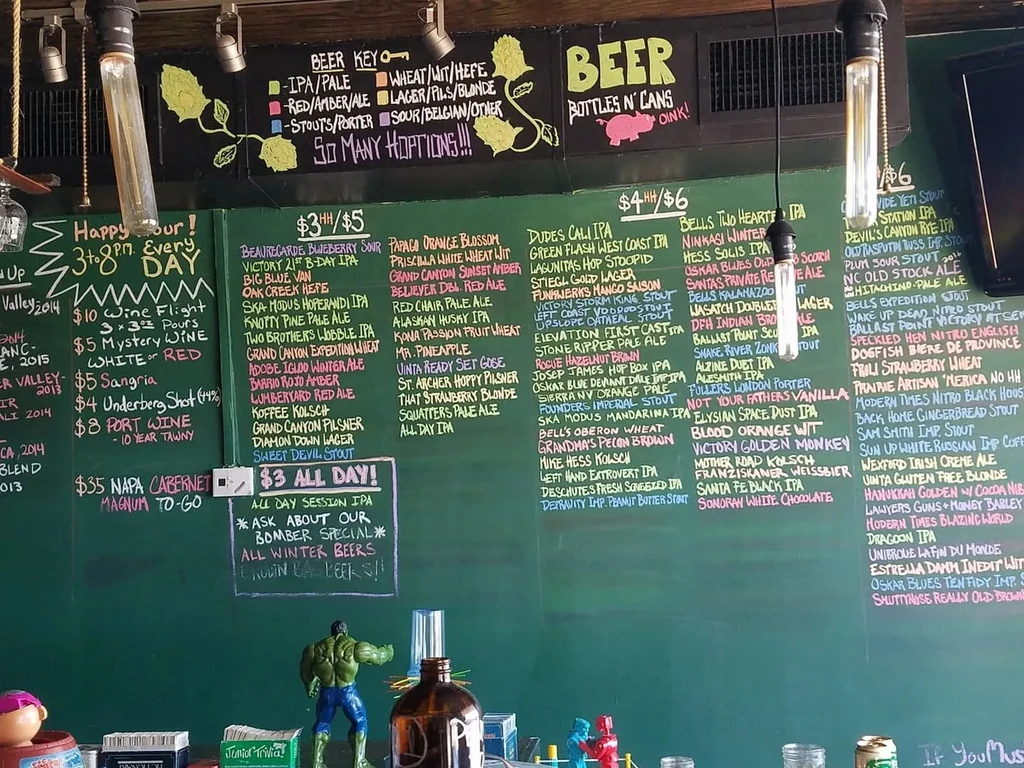 BEER KEY
-IPA/PALE
-RED/AMBER/ALE
-STOUTS/PORTER
WHEAT/WIT/HEFE
LAGER/PILS/BLONDE
SOUR/BELGIAN/OTHER
SO MANY HOPTIONS!!!
BEER
BOTTLES N' CANS
OINK!
Up
Valley, 2014
2014
2015
VALLEY-
2013
2014
CA, 2014
BLEND
013
Happy Hour!
3 to 8 P.M. EVERY
DAY
$10 Wine Flight
3 x 3oz Pours
$5 Mystery WINE
WHITE or RED
$5 Sangria
$4 Underberg Shot (44%)
$8 PORT WINE
-10 YEAR TAWNY
$35 NAPA CABERNET
MAGNUM TO-GO
$3 HH/$5
BEAUREGARDE BLUEBERRY SOUR
VICTORY 21ST B-DAY IPA
BIG BLUE VAN
OAK CREEK HEFE
SKA MODUS HOPERANDI IPA
KNOTTY PINE PALE ALE
TWO BROTHERS WOBBLE IPA
GRAND CANYON EXPEDITION WHEAT
ADOBE IGLOO WINTER ALE
BARRIO ROJO AMBER
LUMBERYARD RED ALE
KOFFEE KOLSCH
GRAND CANYON PILSNER
DIAMON DOWN LAGER
SWEET DEVIL STOUT
PAPAGO ORANGE BLOSSOM
PRISCILLA WHITE WHEAT WIT
GRAND CANYON SUNSET AMBER
BELIEVER DBL. RED ALE
RED CHAIR PALE ALE
ALASKAN HUSKY IPA
KONA PASSION FRUIT WHEAT
MR. PINEAPPLE
UINTA READY SET GOSE
ST. ARCHER HOPPY PILSNER
THAT STRAWBERRY BLONDE
SQUATTERS PALE ALE
ALL DAY IPA
$3 ALL DAY!
ALL DAY SESSION IPA
*ASK ABOUT OUR
BOMBER SPECIAL*
ALL WINTER BEERS
$4 HH/$6
DUDES CALI IPA
GREEN FLASH WEST COAST IPA
LAGUNITAS HOP STOOPID
STIEGL GOLD LAGER
FUNKWERKS MANGO SAISON
STORM KING STOUT
LEFT COAST VOODOO STOUT
UPSLOPE OATMEAL STOUT
ELEVATION FIRST CAST IPA
STONE RIPPER PALE ALE
ROGUE HAZELNUT BROWN
JOSEPH JAMES HOP BOX IPA
OSKAR BLUE DEVIANT DALE IPA
SIERRA NV ORANGE PALE
FOUNDERS IMPERIAL STOUT
SKA MODUS MANDARINA IPA
BELL'S OBERON WHEAT
GRANDMA'S PECAN BROWN
MIKE HESS KOLSCH
LEFT HAND EXTROVERT IPA
DESCHUTES FRESH SQUEEZED IPA
DEPRAVITY IMP. PEANUT BUTTER STOUT
BELLS TWO HEARTED IPA
NINKASI WINTER
HESS SOLIS IPA
OSKAR BLUES OLD SCOTCH
SANTAS PRIVATE RE ALE
BELLS KALAMAZOO STOUT
WASATCH DOUBLE LAGER
DFH INDIAN BROWN ALE
BALLAST POINT IPA
SNAKE RIVER ZONKER STOUT
ALPINE DUET IPA
ALESMITH IPA
FULLERS LONDON PORTER
NOT YOUR FATHERS VANILLA
ELYSIAN SPACE DUST IPA
BLOOD ORANGE WIT
VICTORY GOLDEN MONKEY
MOTHER ROAD KOLSCH
FRANZISKANER WEISSBIER
SANTA FE BLACK IPA
SONORAN WHITE CHOCOLATE
$6
YETI STOUT
STATION IPA
DEVIL'S CANYON RYE IPA
OLD RASPUTIN RUSS. IMP. STOUT
PLUM SOUR STOUT
NC OLD STOCK ALE
HITACHINO PALE ALE
BELLS EXPEDITION STOUT
WAKE UP DEAD, NITRO STOUT
BALLAST POINT VICTORY AT SEA
SPECKLED HEN NITRO ENGLISH
DOGFISH BIERE DE PROVINCE
FRULI STRAWBERRY WHEAT
PRAIRIE ARTISAN 'MERICA NO HH
MODERN TIMES NITRO BLACK HOUSE
BACK HOME GINGERBREAD STOUT
SAM SMITH IMP. STOUT
SUN UP WHITE RUSSIAN IMP COFF
WEXFORD IRISH CREME ALE
UINTA GLUTEN FREE BLONDE
HANUKKAH GOLDEN W/ COCOA NIB
LAWYERS GUNS + MONEY BARLEY
MODERN TIMES BLAZING WORLD
DRAGOON IPA
UNIBROUE LA FIN DU MONDE
ESTRELLA DAMM INEDIT WIT
OSKAR BLUES TEN FIDY IMP. S
SMUTTYNOSE REALLY OLD BROWN
Junior Trivia!
IF YOU MUS